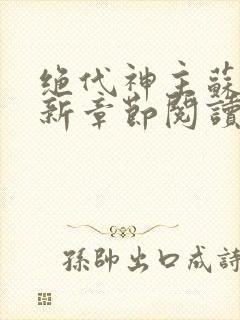 绝代神主蘇
新章節閱讀
孫帥出口成詩